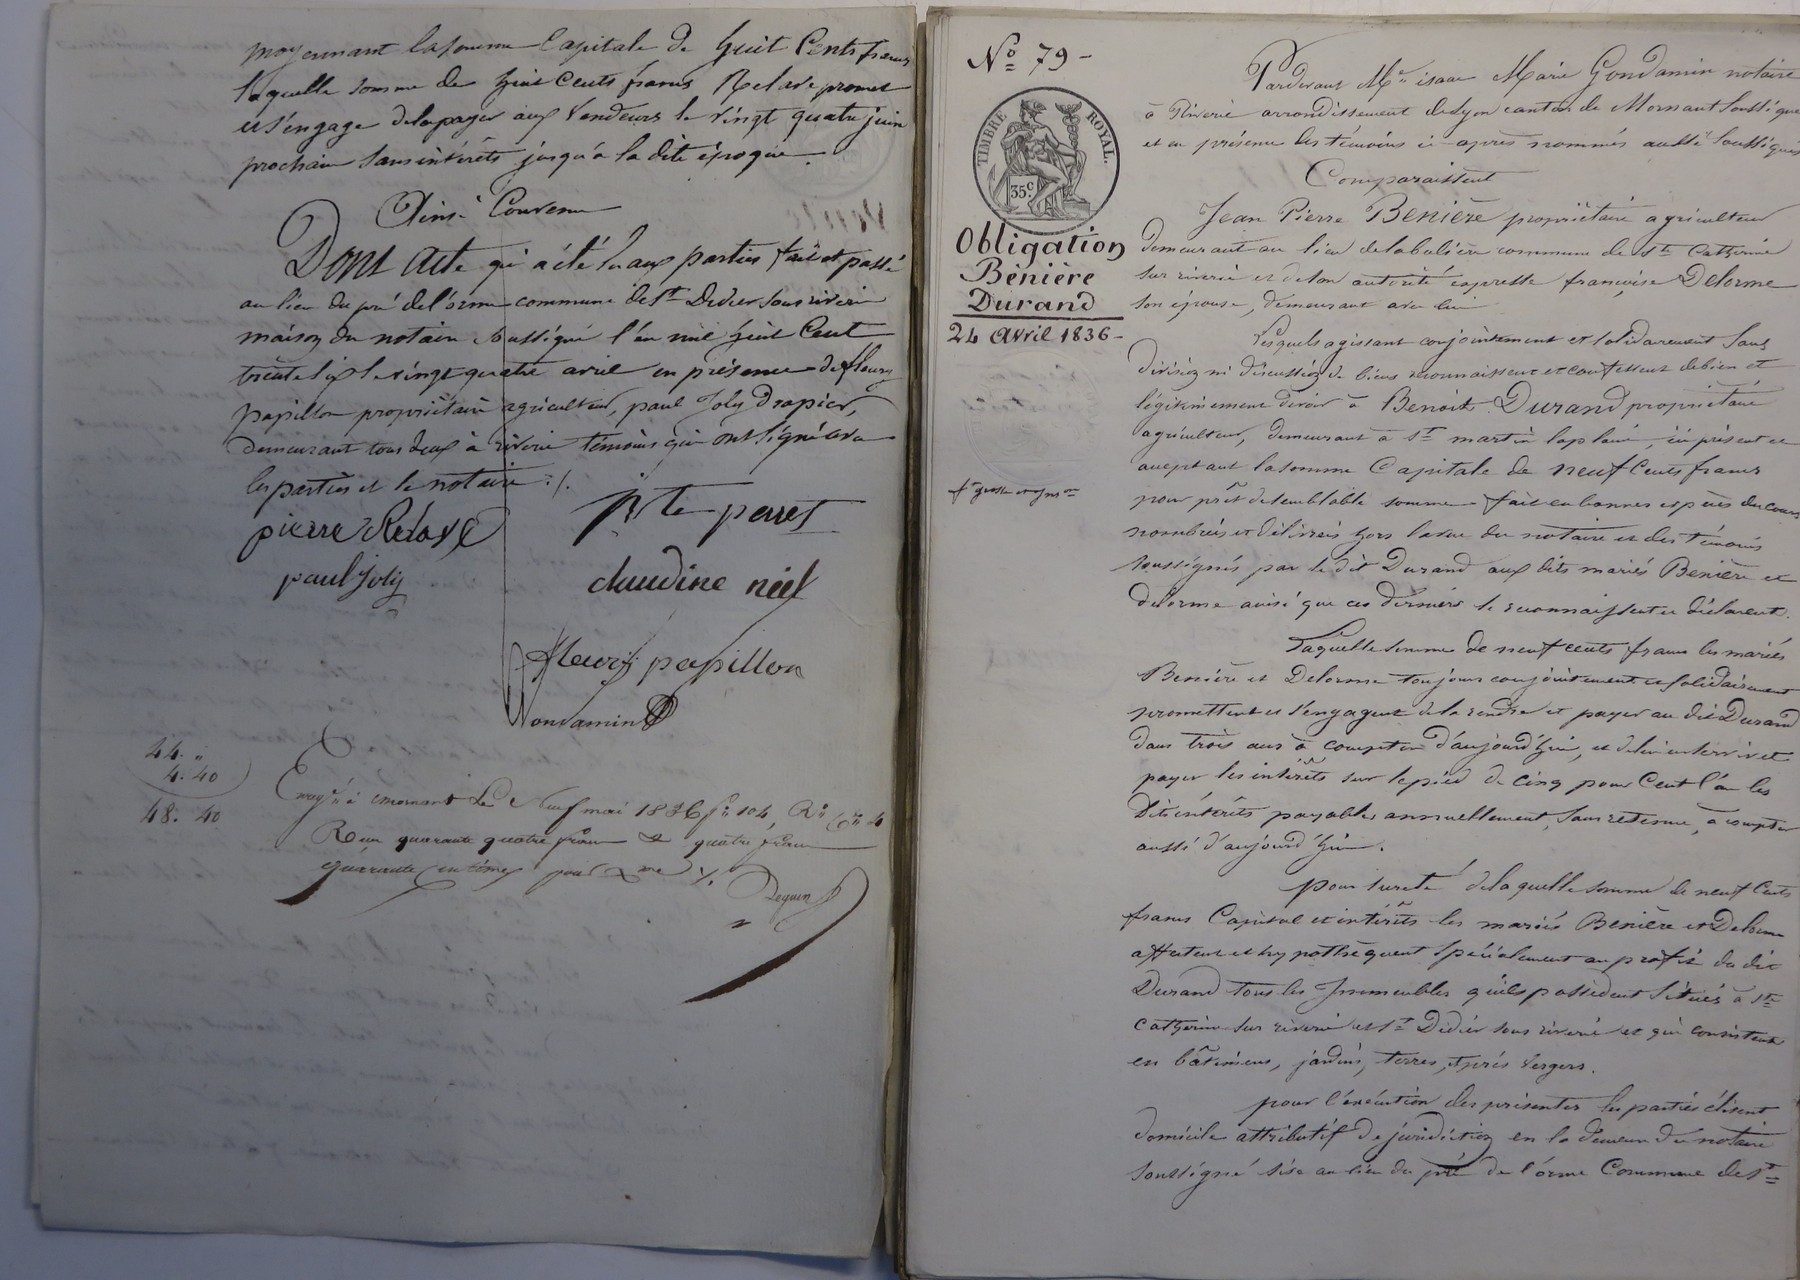 moyennant la somme Capitale de huit Cents francs
laquelle somme de huit Cents francs Relave promet
et s'engage de la payer aux Vendeurs le vingt quatre juin
prochain sans intérêts jusqu'à la dite époque.
Ainsi Convenu
Dont Acte qui a été lu aux parties fait et passé
au lieu du pré de l'orme commune de St Didier sous riverie
maison du notaire soussigné l'an mil huit Cent
trente six le vingt quatre avril en présence de fleury
papillon propriétaire agriculteur, paul Joly Drapier,
demeurant tous deux à riverie témoins qui ont signé avec
les parties et le notaire ./.
pierre Relave
jte perret
paul joly
claudine néel
fleury papillon
Gondamin
44. "
4. 40
48. 40
Enregé à mornant Le neuf mai 1836 fo 104, Ro Ces 4
Reçu quarante quatre francs & quatre francs
quarante centimes pour Xme ./.
Dequin
No 79 -
TIMBRE ROYAL.
35c
Obligation
Bénière
Durand
24 Avril 1836 -
fe grosse et
Pardevant Me isaac Marie Gondamin notaire
à Riverie arrondissement de Lyon canton de Mornant soussigné
et en présence des témoins ci-après nommés aussi soussignés
Comparaissent
Jean Pierre Benière propriétaire agriculteur
demeurant au lieu de commune de Ste Catherine
sur riverie et de son autorité expresse françoise Delorme
son épouse, demeurant avec lui
Lesquels agissant conjointement et solidairement sans
division ni discussion de biens reconnaissent et confessent debien et
légitimement devoir à Benoît Durand propriétaire
agriculteur, demeurant à St martin laplaine, ici présent et
acceptant la somme Capitale de neuf Cents francs
pour prêt de semblable somme fait en bonnes espèces du cours
nombrées et délivrées hors la vue du notaire et des témoins
soussignés par le dit Durand aux dits mariés Benière et
delorme ainsi que ces derniers le reconnaissent et déclarent.
Laquelle somme de neuf cents francs les mariés
Benière et Delorme toujours conjointement et solidairement
promettent et s'engagent de la rendre et payer au dit Durand
dans trois ans à compter d'aujourd'hui, et de lui en servir et
payer les intérêts sur le pied de cinq pour Cent l'an les
Dits intérêts payables annuellement, sans retenue, à compter
aussi d'aujourd'hui.
pour sureté de laquelle somme de neuf Cents
francs Capital et intérêts les mariés Benière et Delorme
affectent et hypothèquent spécialement au profit du dit
Durand tous les Immeubles qu'ils possèdent situés à Ste
Catherine sur riverie et St Didier sous riverie et qui consistent
en bâtimens, jardins, terres, prés vergers.
pour l'exécution des présentes les parties élisent
domicile attributif de juridiction en la demeure du notaire
soussigné sise au lieu du pré de l'orme Commune de St